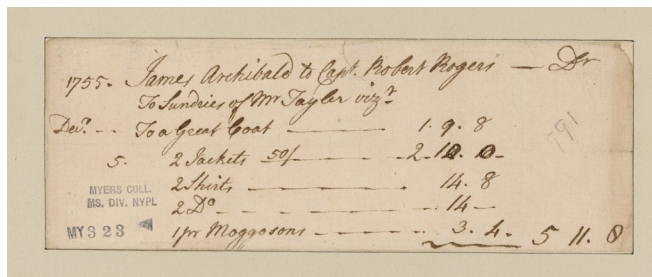 1755. James Archibald to Capt. Robert Rogers — Dr
To Sundries of Mr Tayler vizt.
Decr. - - To a Great Coat — 1. 9. 8
5. 2 Jackets 50/ — 2. 10. 0 -
2 Shirts — 14. 8
2 Do - - - - - 14 —
1 pr Moggosons - - - - 3. 4. - 5 11. 8
MYERS COLL.
MS. DIV. NYPL
MY 3 23